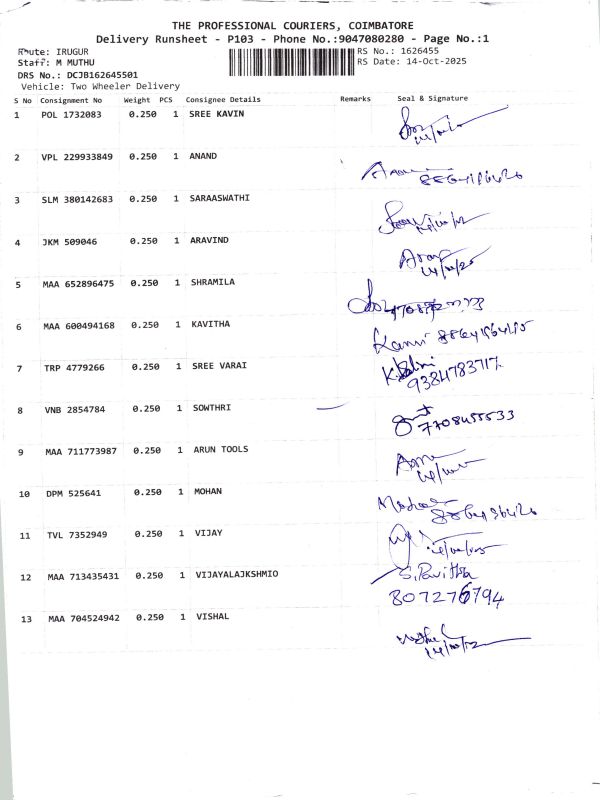 THE PROFESSIONAL COURIERS, COIMBATORE
Delivery Runsheet - P103 - Phone No.:9047080280 - Page No.:1
Route: IRUGUR RS No.: 1626455
Staff: M MUTHU RS Date: 14-Oct-2025
DRS No.: DCJB162645501
Vehicle: Two Wheeler Delivery
S No Consignment No Weight PCS Consignee Details Remarks Seal & Signature
1 POL 1732083 0.250 1 SREE KAVIN
2 VPL 229933849 0.250 1 ANAND
3 SLM 380142683 0.250 1 SARAASWATHI
4 JKM 509046 0.250 1 ARAVIND
14/10/25
5 MAA 652896475 0.250 1 SHRAMILA
6 MAA 600494168 0.250 1 KAVITHA
7 TRP 4779266 0.250 1 SREE VARAI
9384783717
8 VNB 2854784 0.250 1 SOWTHRI
7708455533
9 MAA 711773987 0.250 1 ARUN TOOLS
10 DPM 525641 0.250 1 MOHAN
11 TVL 7352949 0.250 1 VIJAY
12 MAA 713435431 0.250 1 VIJAYALAJKSHMIO S. Pavithra
8072276794
13 MAA 704524942 0.250 1 VISHAL